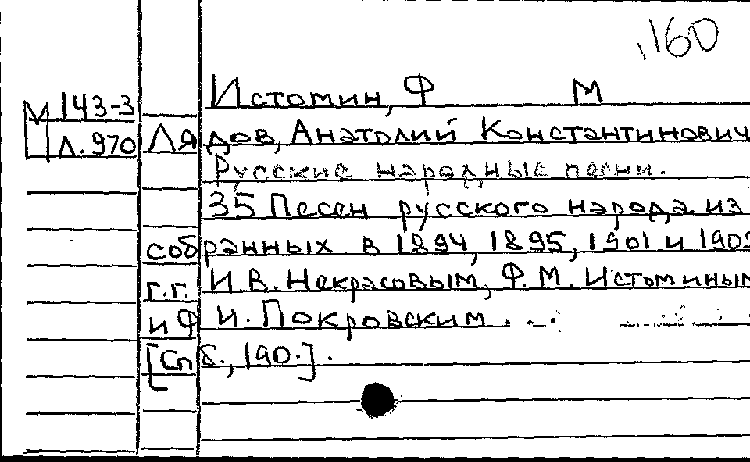 160
М 143-3 Истомин, Ф М
Л.970 Лядов, Анатолий Константинович
Русские народные песни.
35 Песен русского народа из
собранных в 1894, 1895, 1901 и
г.г. И.В. Некрасовым, Ф.М. Истоминым
и Ф И. Покровским.
[Спб., 190.].